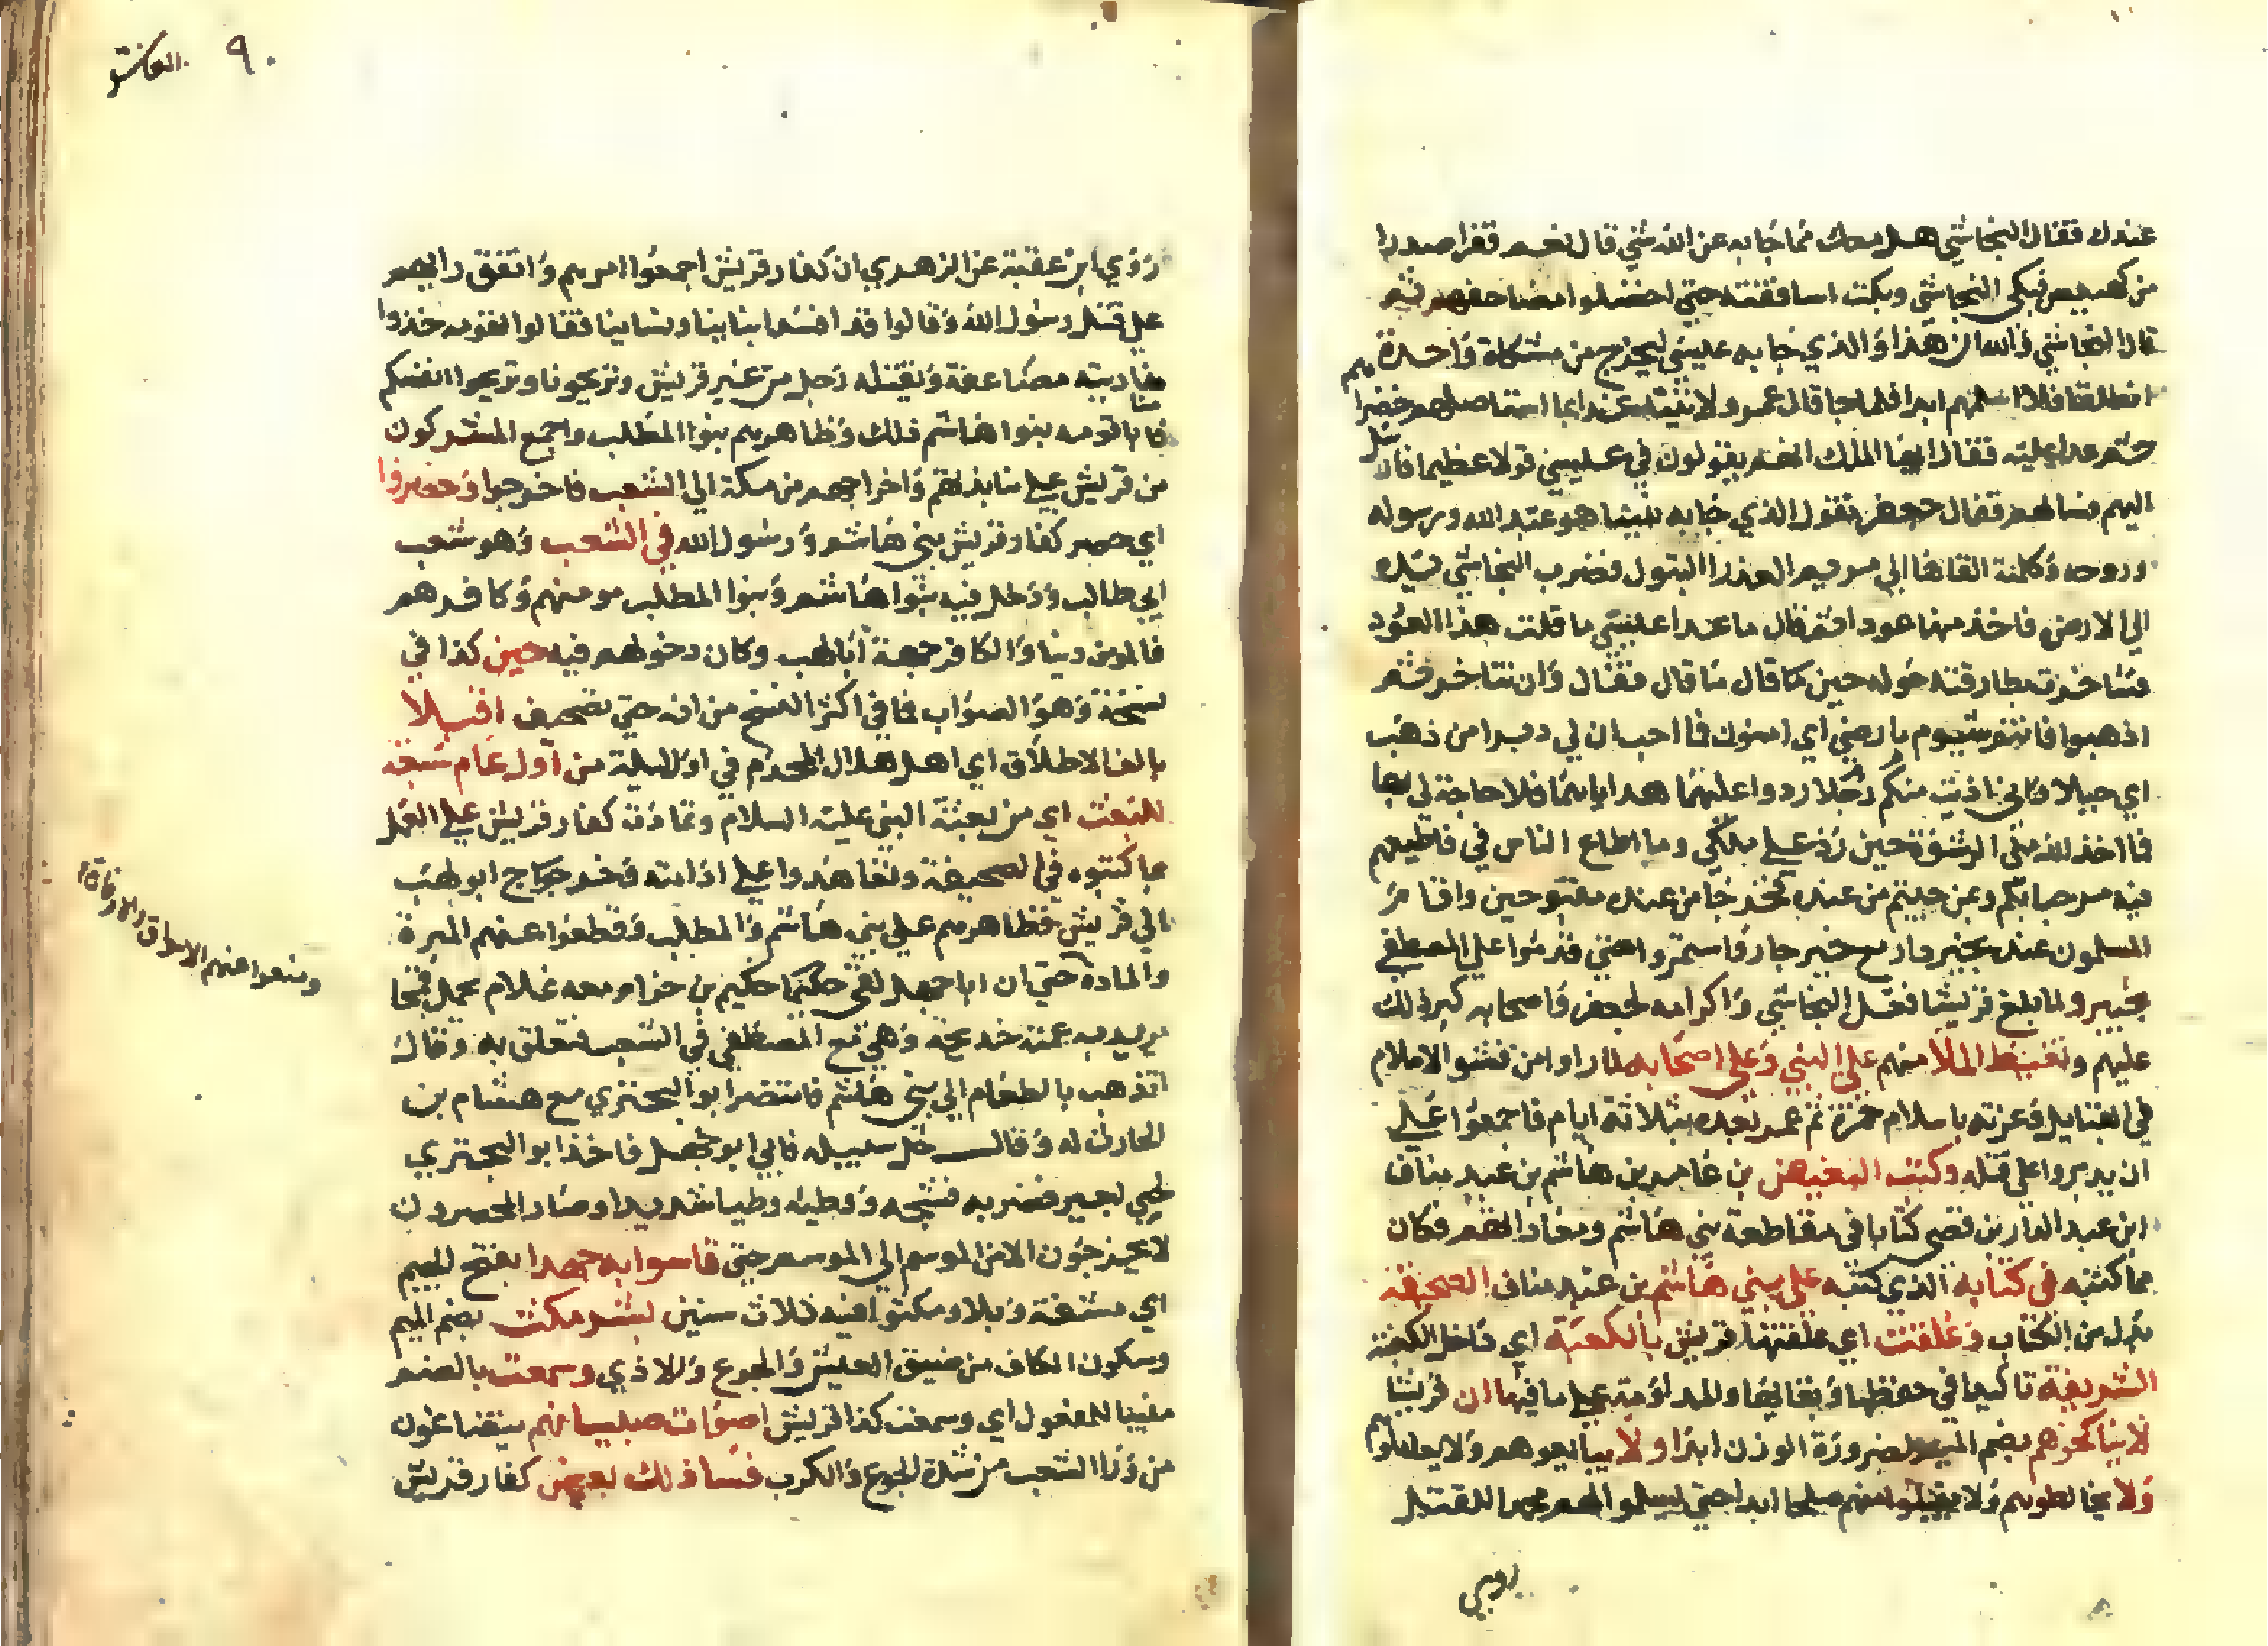 عندك فقال النجاشي هل معك مما جا به عن الله شي قال نعم فقرا صدرا
من كهيعص فبكي النجاشي وبكت اساقفته حتي اخضلوا مصاحفهم ثم
قال النجاشي والله ان هذا والذي جا به عيسي ليخرج من مشكاة واحدة
انطلقا فلا اسلمهم ابدا فلما جا قال عمرو لاتينه غدا بما استاصل به خضراهم
ثم غدا عليه فقال ايها الملك انهم يقولون في عيسي قولا عظيما فارسل
اليهم فسالهم فقال جعفر نقول الذي جا به نبينا هو عبد الله ورسوله
وروحه وكلمته القاها الي مريم العذرا البتول فضرب النجاشي بيده
الي الارض فاخذ منها عودا ثم قال ما عدا عيسي ما قلت هذا العود
فتناخرت بطارقته حوله حين قال ما قال فقال وان نتاخرتم
اذهبوا فانتم شيوم بارضي اي امنون فما احب ان لي دبرا من ذهب
اي جبلا واني اذيت منكم رجلا ردوا عليهما هداياهما فلا حاجة لي بها
فما اخذ الله مني الرشوة حين رد علي ملكي وما اطاع الناس في فاطيعهم
فيه مرحبا بكم وبمن جيتم من عنده فخرجا من عنده مقبوحين واقام
المسلمون عنده بخير دار مع خير جار واستمروا حتي قدموا علي المصطفي
بخيبر ولما بلغ قريشا فعل النجاشي واكرامه لجعفر واصحابه كبر ذلك
عليهم وتغيظ الملا منهم علي النبي وعلي اصحابه لما راوا من فشو الاسلام
في القبايل وعزته باسلام حمزة ثم عمر بعده بثلاثة ايام فاجمعوا علي
ان يدبروا علي قتله وكتب البغيض بن عامر بن هاشم بن عبد مناف
ابن عبد الدار بن قصي كتابا في مقاطعة بني هاشم ومعاداتهم فكان
مما كتبه في كتابه الذي كتبه علي بني هاشم بن عبد مناف الصحيفة
بدل من الكتاب وعلقت اي علقتها قريش بالكعبة اي داخل الكعبة
الشريفة تاكيدا في حفظها وبقايها والمداومة علي ما فيها ان قريشا
لا يناكحوهم بضم الميم لضرورة الوزن ابدا ولا يبايعوهم ولا يعاملوهم
ولا يخالطوهم ولا يقبلوا منهم صلحا ابدا حتي يسلموا لهم محمدا للقتل
روي
٩٠
روي ابن عقبة عن الزهري ان كفار قريش اجمعوا امرهم واتفق رايهم
علي قتل رسول الله وقالوا قد افسد ابناينا ونساينا فقالوا لقومه خذوا
منا ديته مضاعفة ويقتله رجل من غير قريش وتريحونا وتريحوا انفسكم
فابا قومه بنوا هاشم ذلك وظاهرهم بنوا المطلب واجمع المشركون
من قريش علي منابذتهم واخراجهم من مكة الي الشعب فاخرجوا وحصروا
اي حصر كفار قريش بني هاشم ورسول الله في الشعب وهو شعب
ابي طالب ودخل فيه بنوا هاشم وبنوا المطلب مومنهم وكافرهم
فالمومن دينا والكافر حمية أبا لهب وكان دخولهم فيه حين كذا في
نسخة وهو الصواب فما في اكثر النسخ من انه حتي تصحيف اقبلا
بالف الاطلاق اي اهل هلال المحرم في اول ليلة من أول عام سبعة
للبعث اي من بعثة النبي عليه السلام وتمادت كفار قريش علي العمل
بما كتبوه في الصحيفة وتعاهدوا علي اذايته فخرج ابو لهب
الي قريش فظاهرهم علي بني هاشم والمطلب وقطعوا عنهم الميرة
ومنعوا عنهم الاسواق
والمادة حتي ان ابا جهل لقي حكيم بن حزام ومعه غلام يحمل قمحا
يريد به عمته خديجة وهي مع المصطفي في الشعب فتعلق به وقال
اتذهب بالطعام الي بني هاشم فانتصر ابو البحتري مع هشام بن
الحارث له وقال خل سبيله فابي ابو جهل فاخذ ابو البحتري
لحيي بعير فضربه فشجه ووطيه وطيا شديدا وصار المحصرون
لا يخرجون الا من الموسم الي الموسم حتي قاسوا به جهدا بفتح الجيم
اي مشقة وبلا ومكثوا فيه ثلاث سنين بشر مكث بضم الميم
وسكون الكاف من ضيق العيش والجوع والاذي وسمعت بالضم
مبنيا للمفعول اي وسمعت كذا قريش اصوات صبيانهم يتضاغون
من ورا الشعب من شدة الجوع والكرب فسا ذلك بعض كفار قريش